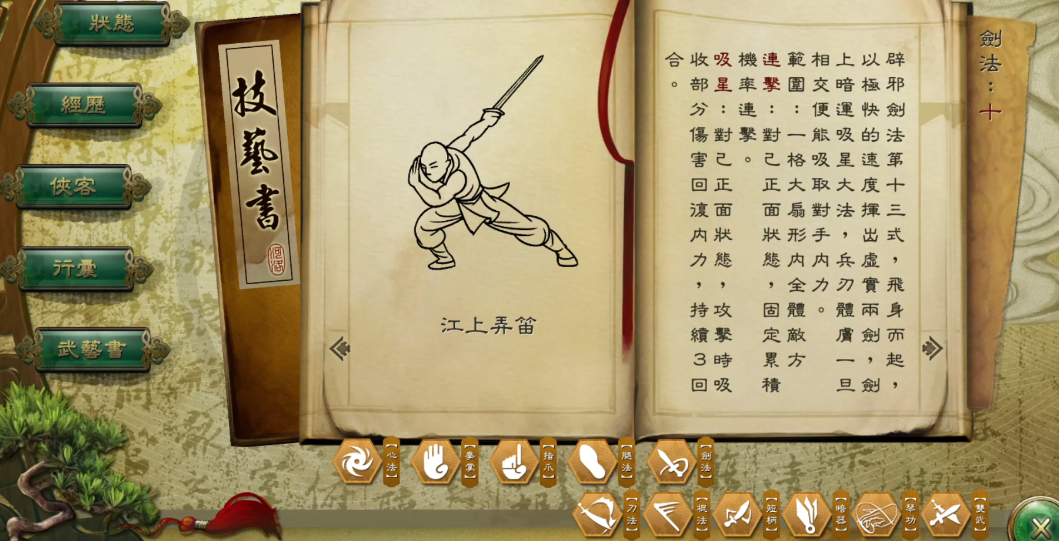 狀態
經歷
俠客
行囊
武藝書
技藝書
河洛
江上弄笛
劍法：十
辟邪劍法第十三式，飛身而起，
以極快的速度揮出虛實兩劍，劍
上暗運吸星大法，兵刃體膚一旦
相交便能吸取對手内力。
範圍：一格大扇形内全體敵方
連擊：對己正面狀態，固定累積
機率連擊。
吸星：對己正面狀態，攻擊時吸
收部分傷害回復内力，持續3回
合。
【心法】
【拳掌】
【指爪】
【腿法】
【劍法】
【刀法】
【棍法】
【短柄】
【暗器】
【琴功】
【雙武】